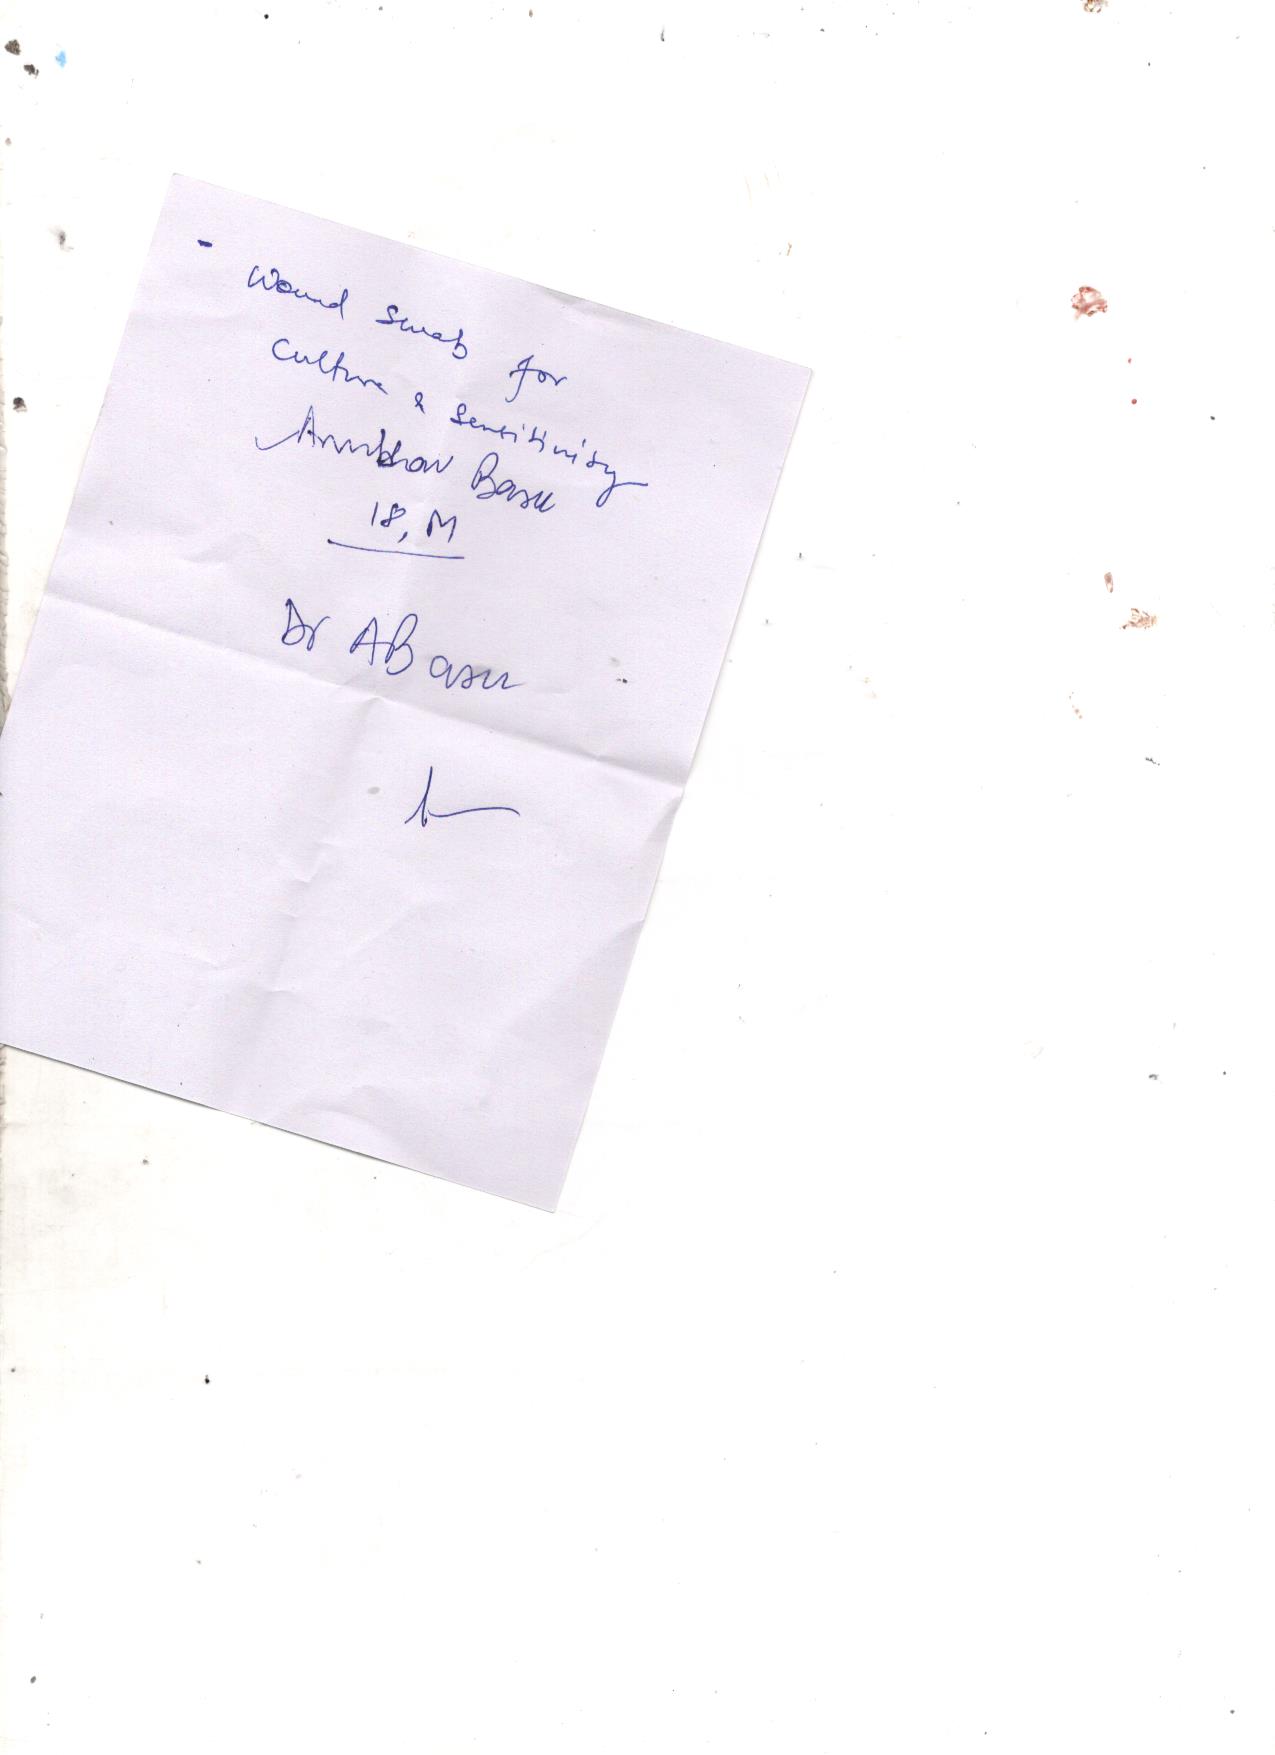 - Wound swab for
Culture & Sensitivity
Anubhav Basu
18, M
Dr A Basu